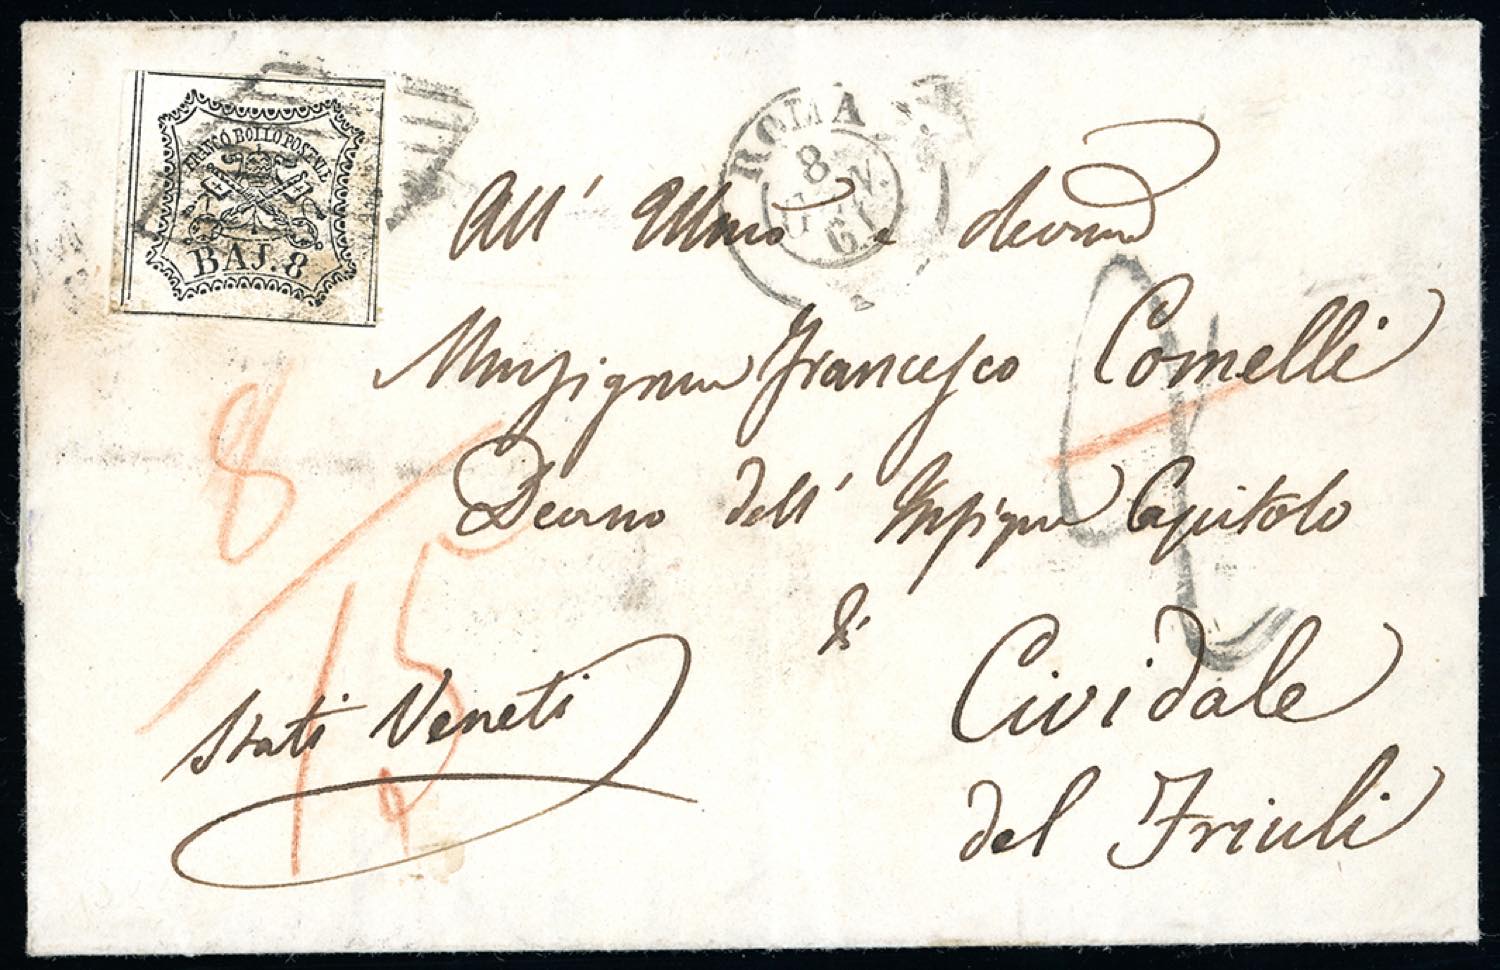 FRANCO BOLLO POSTALE
BAJ. 8
ROMA
8
GEN.
61
All' Illmo e
Monsignore Francesco Comelli
Decano dell' Insigne Capitolo
di
Cividale
del Friuli
Stati Veneti
8
15